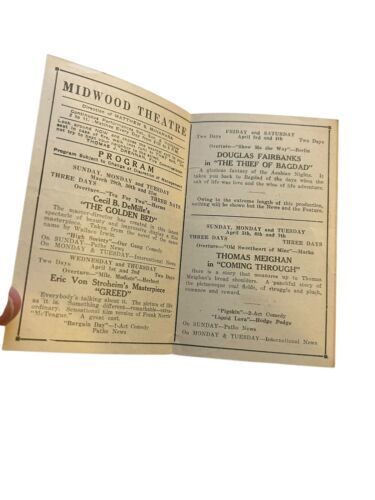 MIDWOOD THEATRE
Direction of MATTHEW
Continuous Perf
2 to 11; Matinee Every Day
Look around NOW and
seat. In case of fire
not try to beat
THOMAS
PROGRAM
Program Subject to Change at Discretion of Management
SUNDAY, MONDAY and TUESDAY
March 29th, 30th and 31st
THREE DAYS THREE DAYS
Overture—
Cecil B. DeMille's
"THE GOLDEN BED"
The master-director has created in this latest
spectacle of beauty and
Taken from the novel
by Wallace Irwin.
"High Society"—Our Gang Comedy
On SUNDAY—Pathe News
On MONDAY & TUESDAY—International News
WEDNESDAY and THURSDAY
Two Days April 1st and 2nd Two Days
Overture—"Mlle. Modiste"—Herbert
Eric Von Stroheim's Masterpiece
"GREED"
Everybody's talking about it. The picture of life
as it is. Something different—remarkable—extra-
ordinary. Sensational film version of Frank Norris'
"McTeague." A great cast.
"Bargain Day"—2-Act Comedy
Pathe News
FRIDAY and SATURDAY
Two Days April 3rd and 4th Two Days
Overture—"Show Me the Way"—Berlin
DOUGLAS FAIRBANKS
in "THE THIEF OF BAGDAD"
A glorious fantasy of the Arabian Nights. It
takes you back to Bagdad of the days when the
salt of life was love and the wine of life adventure.
Owing to the extreme length of this production,
nothing will be shown but the News and the Feature.
SUNDAY, MONDAY and TUESDAY
April 5th, 6th and 7th
THREE DAYS THREE DAYS
Overture—"Old Sweetheart of Mine"—Marks
THOMAS MEIGHAN
in "COMING THROUGH"
Here is a story that measures up to Thomas
Meighan's broad shoulders. A punchful story of
the picturesque coal fields, of struggle and pluck,
romance and reward.
"Pigskin"—2-Act Comedy
"Liquid Lava"—Hodge Podge
On SUNDAY—Pathe News
On MONDAY & TUESDAY—International News